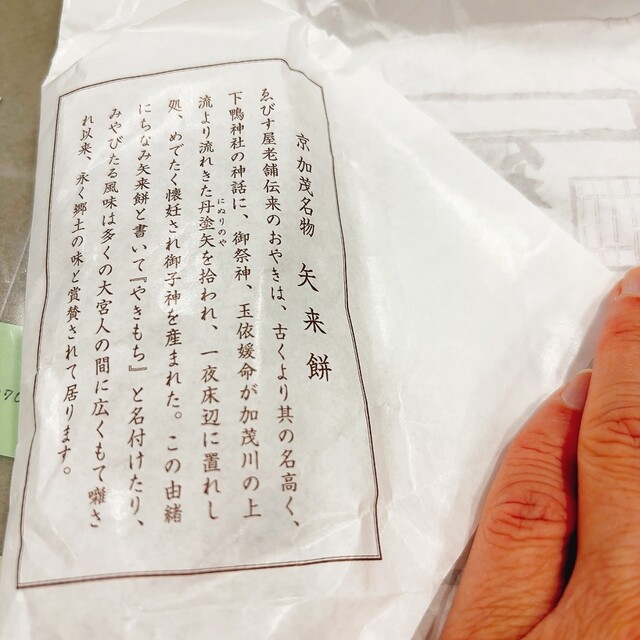 京加茂名物　矢来餅
ゑびす屋老舗伝来のおやきは、古くより其の名高く、
下鴨神社の神話に、御祭神、玉依媛命が加茂川の上
流より流れきた丹塗矢を拾われ、一夜床辺に置れし
にぬりのや
処、めでたく懐妊され御子神を産まれた。この由緒
にちなみ矢来餅と書いて『やきもち』と名付けたり、
みやびたる風味は多くの大宮人の間に広くもて囃さ
れ以来、永く郷土の味と賞賛されて居ります。